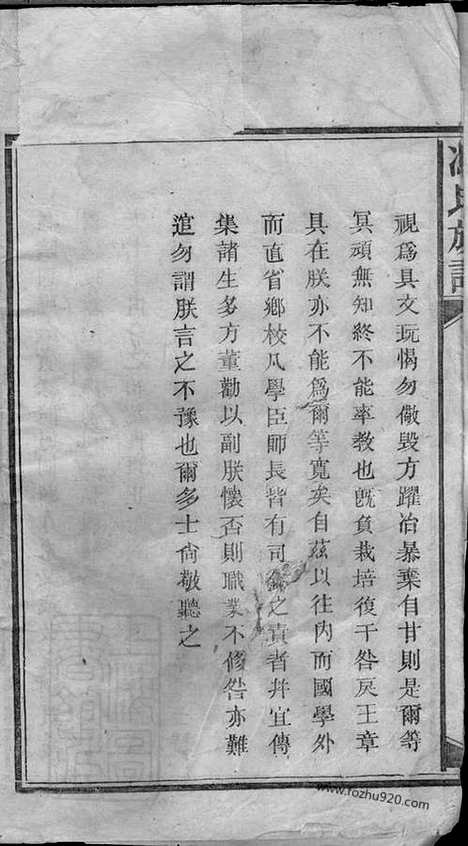 視爲具文玩愒勿儆毀方躍冶暴棄自甘則是爾等
冥頑無知終不能率教也旣負栽培復干咎戾王章
具在朕亦不能爲爾等寬矣自茲以往內而國學外
而直省鄉校凡學臣師長皆有司之責者幷宜傳
集諸生多方董勸以副朕懷否則職業不修咎亦難
逭勿謂朕言之不豫也爾多士尙敬聽之
氏族譜
www.fozhu920.com